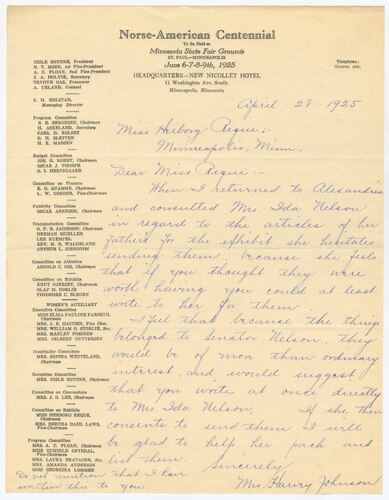 Norse-American Centennial
To Be Held at
Minnesota State Fair Grounds
ST. PAUL—MINNEAPOLIS
June 6-7-8-9th, 1925
HEADQUARTERS—NEW NICOLLET HOTEL
11 Washington Ave. South
Minneapolis, Minnesota
Telephone:
GISLE BOTHNE, President
N. T. MOEN, 1st Vice-President
A. C. FLOAN, 2nd Vice-President
J. A. HOLVIK, Secretary
TRYGVE OAS, Treasurer
A. UELAND, Counsel
S. H. HOLSTAD,
Managing Director
Program Committee
S. E. BERGESEN, Chairman
H. ASKELAND, Secretary
CARL D. KOLSET
O. M. SLETTEN
H. K. MADSEN
Budget Committee
JOS. G. NORBY, Chairman
OSCAR J. THORPE
O. I. HERTSGAARD
Committee on Finance
E. G. QUAMME, Chairman
L. W. GORDER, Vice-Chairman
Publicity Committee
OSCAR ARNESON, Chairman
Transportation Committee
O. P. B. JACOBSON, Chairman
HERMAN MUELLER
LEE KUEMPEL
REV. M. B. WALDELAND
ARTHUR L. JOHNSTON
Committee on Athletics
ARNOLD C. OSS, Chairman
Committee on Exhibits
KNUT GJERSET, Chairman
OLAF H. NORLIE
THEODORE C. BLEGEN
WOMEN'S AUXILIARY
Executive Committee
MISS ELISA PAULINE FARSETH,
Chairman
MRS. J. E. HAUGEN, Vice Chm.
MRS. WILLIAM O. STORLIE, Sec.
MRS. MANLEY FOSSEEN
MRS. GILBERT GUTTERSEN
Hospitality Committee
MRS. SOPHIA WETTELAND,
Chairman
Reception Committee
MRS. GISLE BOTHNE, Chairman
Committee on Concessions
MRS. J. O. LEE, Chairman
Committee on Exhibits
MISS HERBORG REQUE,
Chairman
MRS. BERTHA DAHL LAWS,
Vice-Chairman
Program Committee
MRS. A. C. FLOAN, Chairman
MISS GUNHILD OFTEDAL,
Vice-Chairman
MRS. LAURA BRATAGER, Sec.
MRS. AMANDA ANDERSON
MISS GEORGINA LOMMEN
April - 28 - 1925
Miss Harborg Reque;
Minneapolis, Minn.
Dear Miss Reque:-
When I returned to Alexandria
and consulted Mrs. Ida Nelson
in regard to the articles of her
fathers for the exhibit she hesitates
sending them, because she feels
that if you thought they were
worth having you could at least
write to her for them.
I feel that because the things
belonged to Senator Nelson they
would be of more than ordinary
interest and would suggest
that you wrote at once directly
to Mrs. Ida Nelson. If she then
consents to send them I will
be glad to help her pack and
list them.
Sincerely
Mrs. Harry Johnson
Do not mention that I have
written this to you